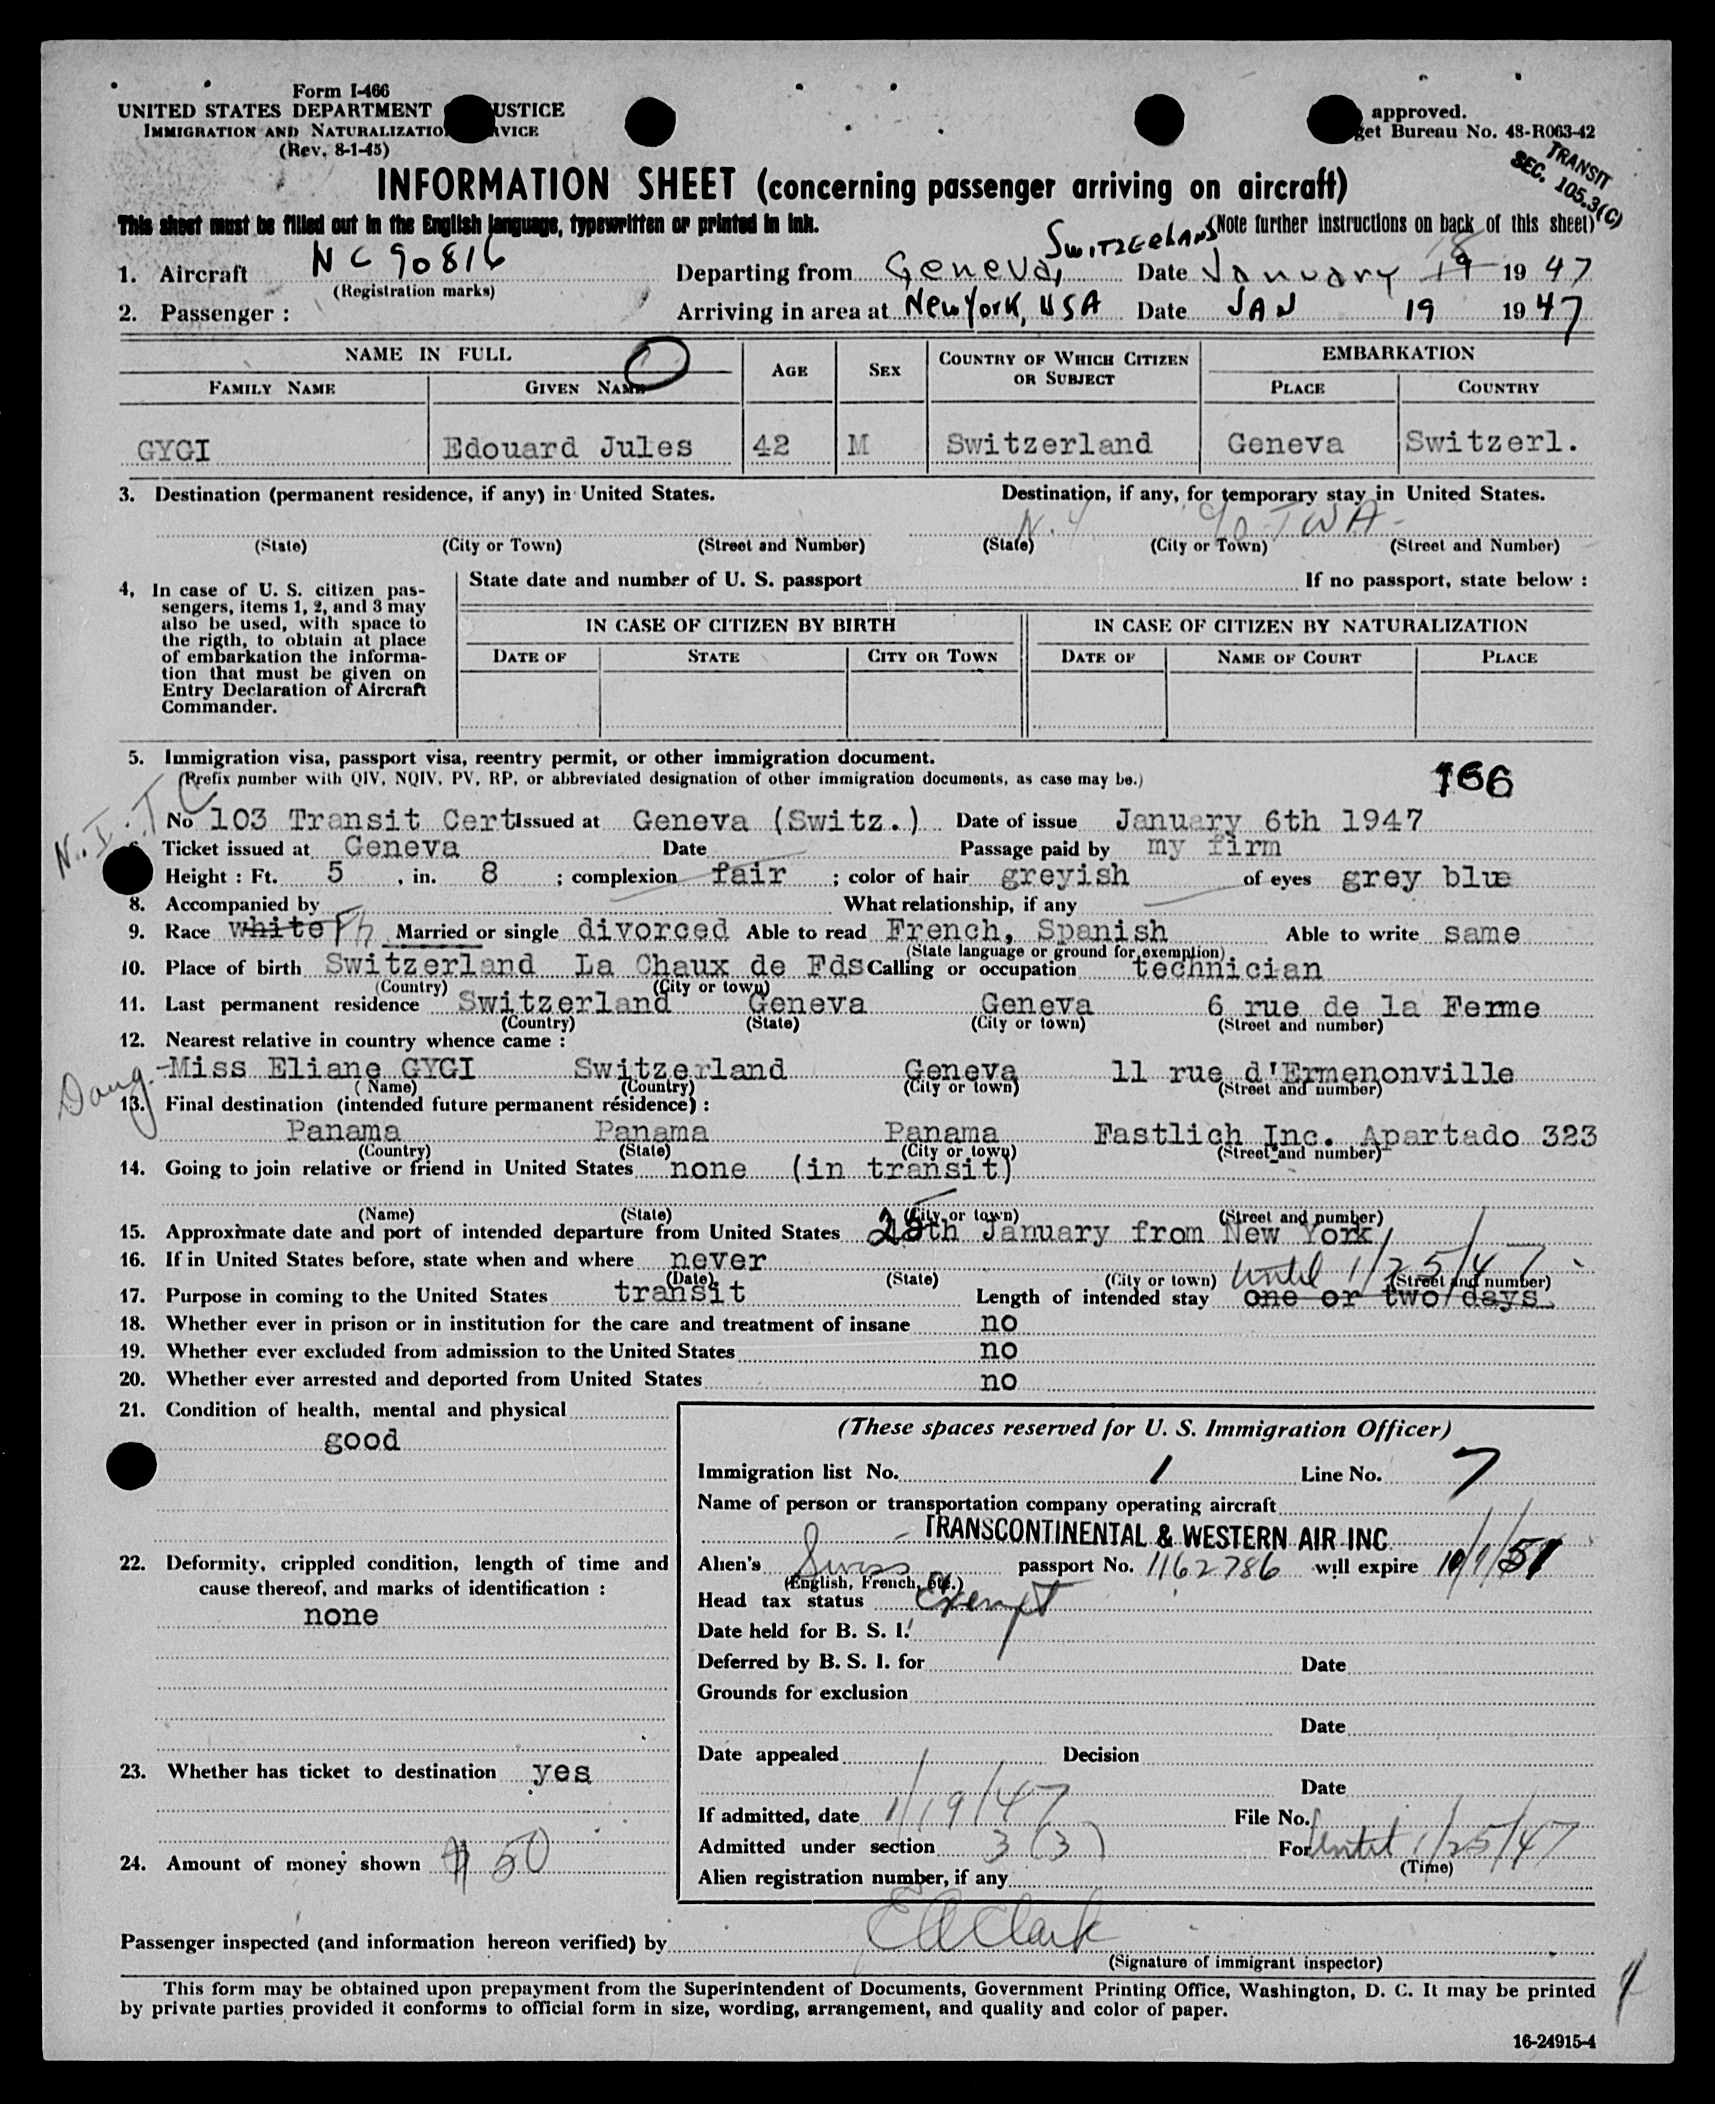 Form I-466
UNITED STATES DEPARTMENT USTICE
IMMIGRATION AND NATURALIZATIO RVICE
(Rev. 8-1-45)
approved.
get Bureau No. 43-R063-42
TRANSIT
SEC. 105.3(C)
INFORMATION SHEET (concerning passenger arriving on aircraft)
This sheet must be filled out in the English language, typewritten or printed in ink.
(Note further instructions on back of this sheet)
1. Aircraft NC90816 Departing from Geneva, SWITZERLAND Date January 18 19 1947
(Registration marks)
2. Passenger : Arriving in area at New York, USA Date JAN 19 1947
NAME IN FULL
AGE
SEX
COUNTRY OF WHICH CITIZEN OR SUBJECT
EMBARKATION
FAMILY NAME GIVEN NAME PLACE COUNTRY
GYGI Edouard Jules 42 M Switzerland Geneva Switzerl.
3. Destination (permanent residence, if any) in United States. Destination, if any, for temporary stay in United States.
N.Y. c/o TWA
(State) (City or Town) (Street and Number) (State) (City or Town) (Street and Number)
4, In case of U. S. citizen pas-
sengers, items 1, 2, and 3 may
also be used, with space to
the rigth, to obtain at place
of embarkation the informa-
tion that must be given on
Entry Declaration of Aircraft
Commander.
State date and number of U. S. passport If no passport, state below :
IN CASE OF CITIZEN BY BIRTH IN CASE OF CITIZEN BY NATURALIZATION
DATE OF STATE CITY OR TOWN DATE OF NAME OF COURT PLACE
5. Immigration visa, passport visa, reentry permit, or other immigration document.
(Prefix number with QIV, NQIV, PV, RP, or abbreviated designation of other immigration documents, as case may be.)
166
N.I.T.C
No 103 Transit Cert Issued at Geneva (Switz.) Date of issue January 6th 1947
Ticket issued at Geneva Date Passage paid by my firm
Height : Ft. 5 , in. 8 ; complexion fair ; color of hair greyish of eyes grey blue
8. Accompanied by What relationship, if any
9. Race white Fh Married or single divorced Able to read French, Spanish Able to write same
(State language or ground for exemption)
10. Place of birth Switzerland La Chaux de Fds Calling or occupation technician
(Country) (City or town)
11. Last permanent residence Switzerland Geneva Geneva 6 rue de la Ferme
(Country) (State) (City or town) (Street and number)
12. Nearest relative in country whence came :
Daug.
Miss Eliane GYGI Switzerland Geneva 11 rue d'Ermenonville
(Name) (Country) (City or town) (Street and number)
13. Final destination (intended future permanent résidence) :
Panama Panama Panama Fastlich Inc. Apartado 323
(Country) (State) (City or town) (Street and number)
14. Going to join relative or friend in United States none (in transit)
(Name) (State) (City or town) (Street and number)
15. Approximate date and port of intended departure from United States 25th January from New York
16. If in United States before, state when and where never
(Date) (State) (City or town) (Street and number)
until 1/25/47
17. Purpose in coming to the United States transit Length of intended stay one or two days
18. Whether ever in prison or in institution for the care and treatment of insane no
19. Whether ever excluded from admission to the United States no
20. Whether ever arrested and deported from United States no
21. Condition of health, mental and physical
good
22. Deformity, crippled condition, length of time and
cause thereof, and marks of identification :
none
23. Whether has ticket to destination yes
24. Amount of money shown $50
(These spaces reserved for U. S. Immigration Officer)
Immigration list No. 1 Line No. 7
Name of person or transportation company operating aircraft
TRANSCONTINENTAL & WESTERN AIR INC
Alien's Swiss passport No. 1162786 will expire 10/1/51
(English, French, etc.)
Head tax status Exempt
Date held for B. S. I.
Deferred by B. S. I. for Date
Grounds for exclusion
Date
Date appealed Decision
Date
If admitted, date 1/19/47 File No.
Admitted under section 3(3) For until 1/25/47
(Time)
Alien registration number, if any
Passenger inspected (and information hereon verified) by E A Clark
(Signature of immigrant inspector)
This form may be obtained upon prepayment from the Superintendent of Documents, Government Printing Office, Washington, D. C. It may be printed
by private parties provided it conforms to official form in size, wording, arrangement, and quality and color of paper.
16-24915-4